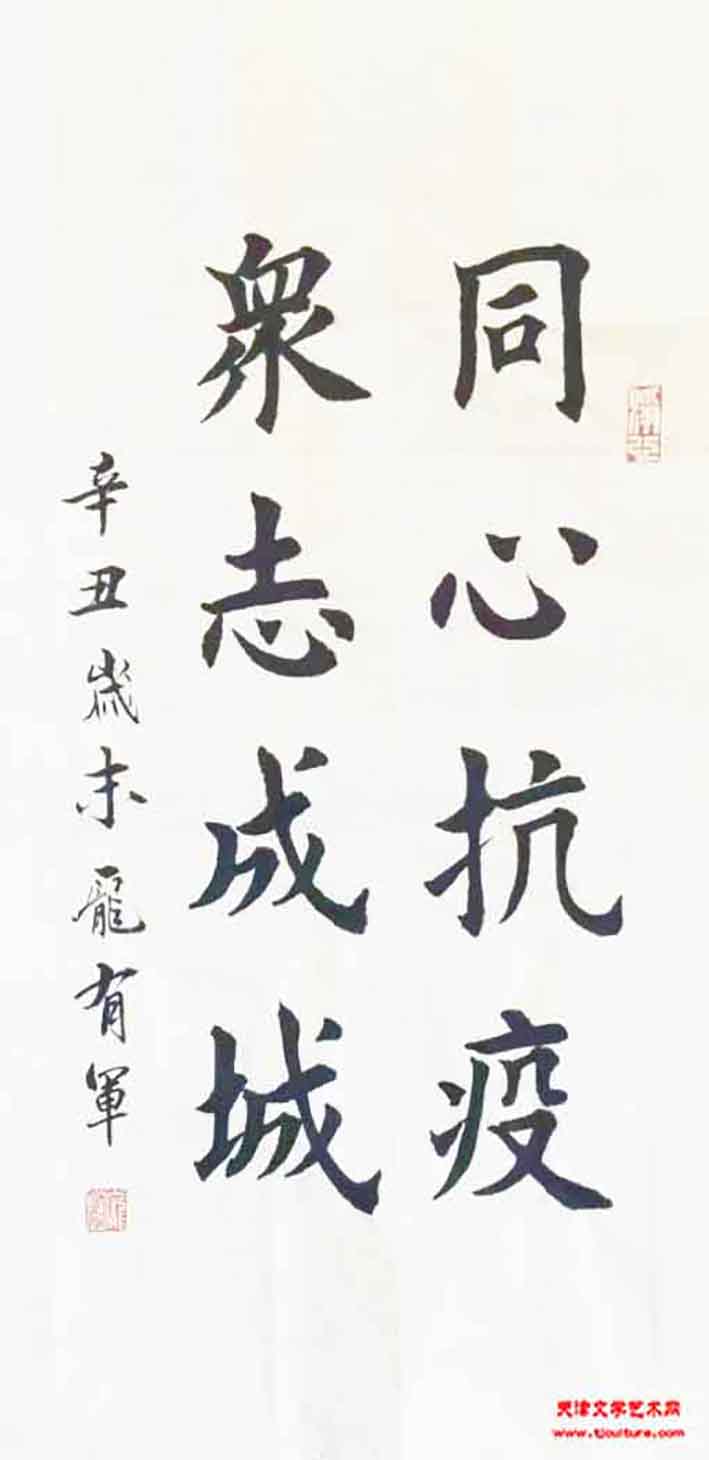 同心抗疫
衆志成城
辛丑歲末龍有軍
天津文学艺术网
www.tjculture.com